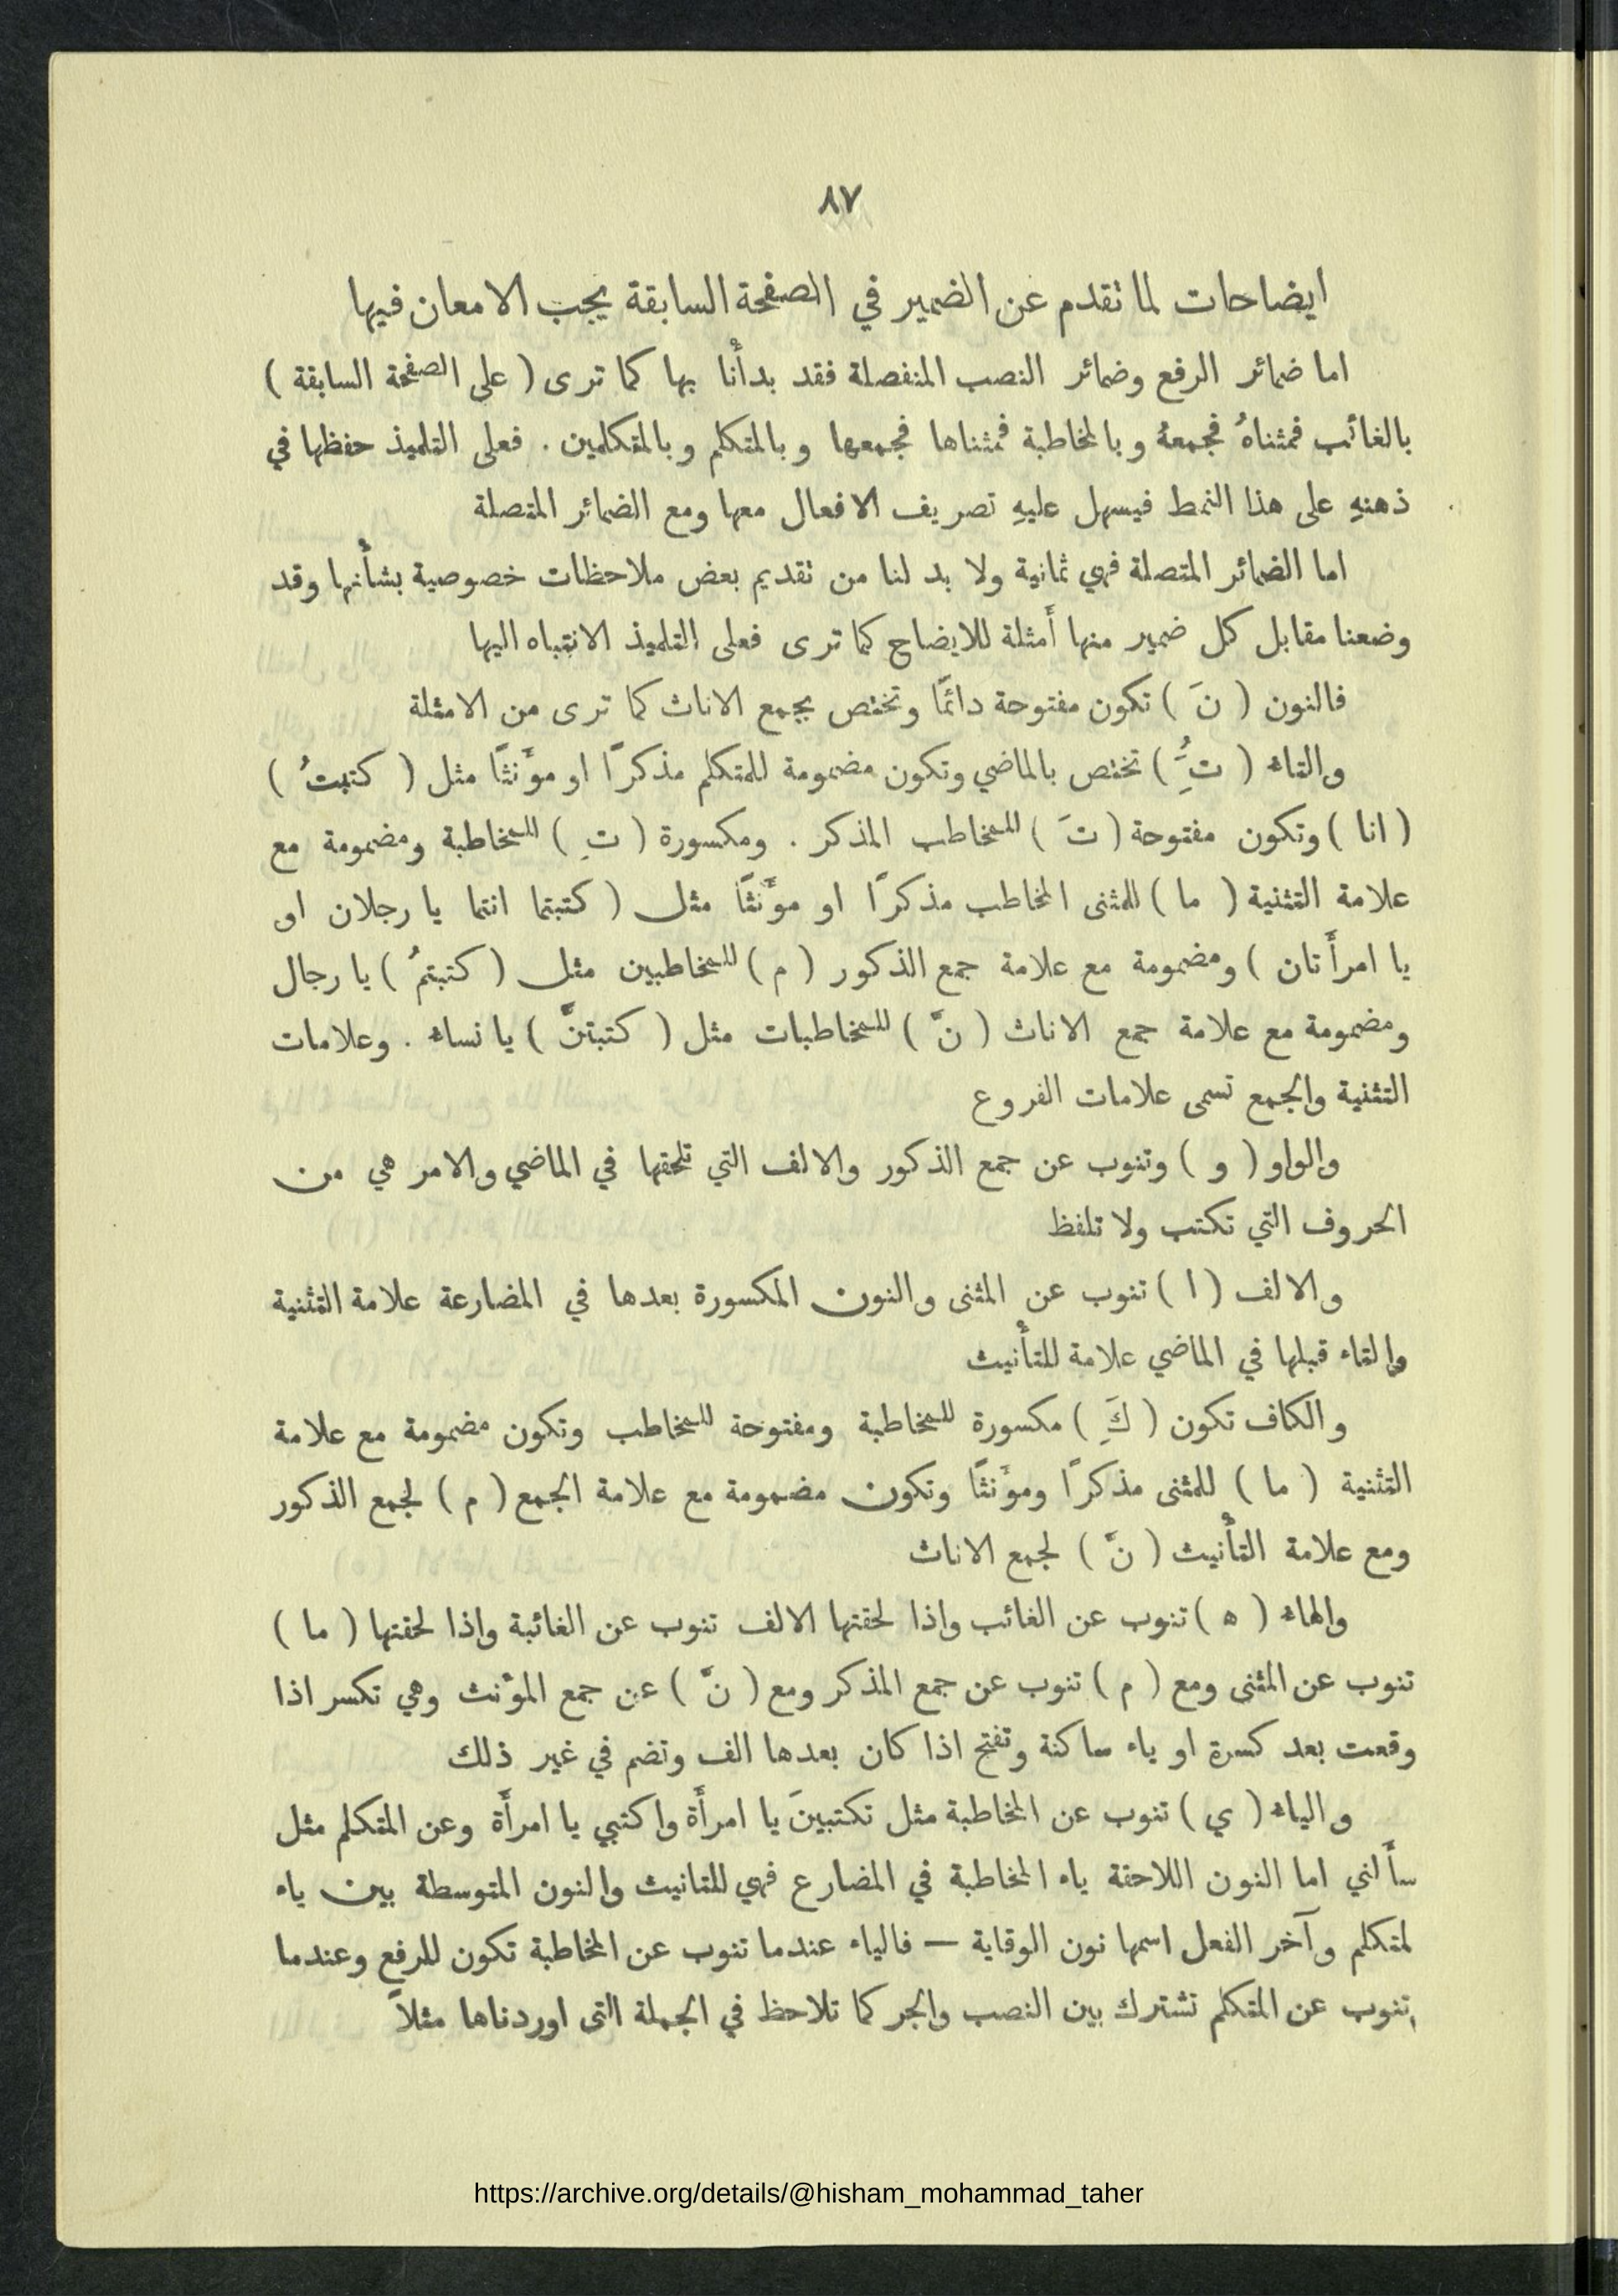 ٨٧
ايضاحات لما تقدم عن الضمير في الصفحة السابقة يجب الامعان فيها
اما ضمائر الرفع وضمائر النصب المنفصلة فقد بدأنا بها كما ترى ( على الصفحة السابقة )
بالغائب فمثناهُ فجمعهُ وبالمخاطبة فمثناها فجمعها وبالمتكلم وبالمتكلمين . فعلى التلميذ حفظها في
ذهنهِ على هذا النمط فيسهل عليهِ تصريف الافعال معها ومع الضمائر المتصلة
اما الضمائر المتصلة فهي ثمانية ولا بد لنا من تقديم بعض ملاحظات خصوصية بشأنها وقد
وضعنا مقابل كل ضمير منها أمثلة للايضاح كما ترى فعلى التلميذ الانتباه اليها
فالنون ( نَ ) تكون مفتوحة دائمًا وتختص بجمع الاناث كما ترى من الامثلة
والتاء ( تَُِ ) تختص بالماضي وتكون مضمومة للمتكلم مذكرًا او مؤَنثًا مثل ( كتبتُ )
( انا ) وتكون مفتوحة ( تَ ) للمخاطب المذكر . ومكسورة ( تِ ) للمخاطبة ومضمومة مع
علامة التثنية ( ما ) للمثنى المخاطب مذكرًا او مؤَنثًا مثل ( كتبتما انتما يا رجلان او
يا امرأَتان ) ومضمومة مع علامة جمع الذكور ( م ) للمخاطبين مثل ( كتبتمُ ) يا رجال
ومضمومة مع علامة جمع الاناث ( نَّ ) للمخاطبات مثل ( كتبتنَّ ) يا نساء . وعلامات
التثنية والجمع تسمى علامات الفروع
والواو ( و ) وتنوب عن جمع الذكور والالف التي تلحقها في الماضي والامر هي من
الحروف التي تكتب ولا تلفظ
والالف ( ا ) تنوب عن المثنى والنون المكسورة بعدها في المضارعة علامة التثنية
والتاء قبلها في الماضي علامة للتأنيث
والكاف تكون ( كَِ ) مكسورة للمخاطبة ومفتوحة للمخاطب وتكون مضمومة مع علامة
التثنية ( ما ) للمثنى مذكرًا ومؤَنثًا وتكون مضمومة مع علامة الجمع ( م ) لجمع الذكور
ومع علامة التأنيث ( نَّ ) لجمع الاناث
والهاء ( ه ) تنوب عن الغائب واذا لحقتها الالف تنوب عن الغائبة واذا لحقتها ( ما )
تنوب عن المثنى ومع ( م ) تنوب عن جمع المذكر ومع ( نَّ ) عن جمع المؤنث وهي تكسر اذا
وقعت بعد كسرة او ياء ساكنة وتفتح اذا كان بعدها الف وتضم في غير ذلك
والياء ( ي ) تنوب عن المخاطبة مثل تكتبينَ يا امرأَة واكتبي يا امرأَة وعن المتكلم مثل
سأَلني اما النون اللاحقة ياء المخاطبة في المضارع فهي للتانيث والنون المتوسطة بين ياء
لمتكلم وآخر الفعل اسمها نون الوقاية — فالياء عندما تنوب عن المخاطبة تكون للرفع وعندما
تنوب عن المتكلم تشترك بين النصب والجر كما تلاحظ في الجملة التى اوردناها مثلاً
https://archive.org/details/@hisham_mohammad_taher